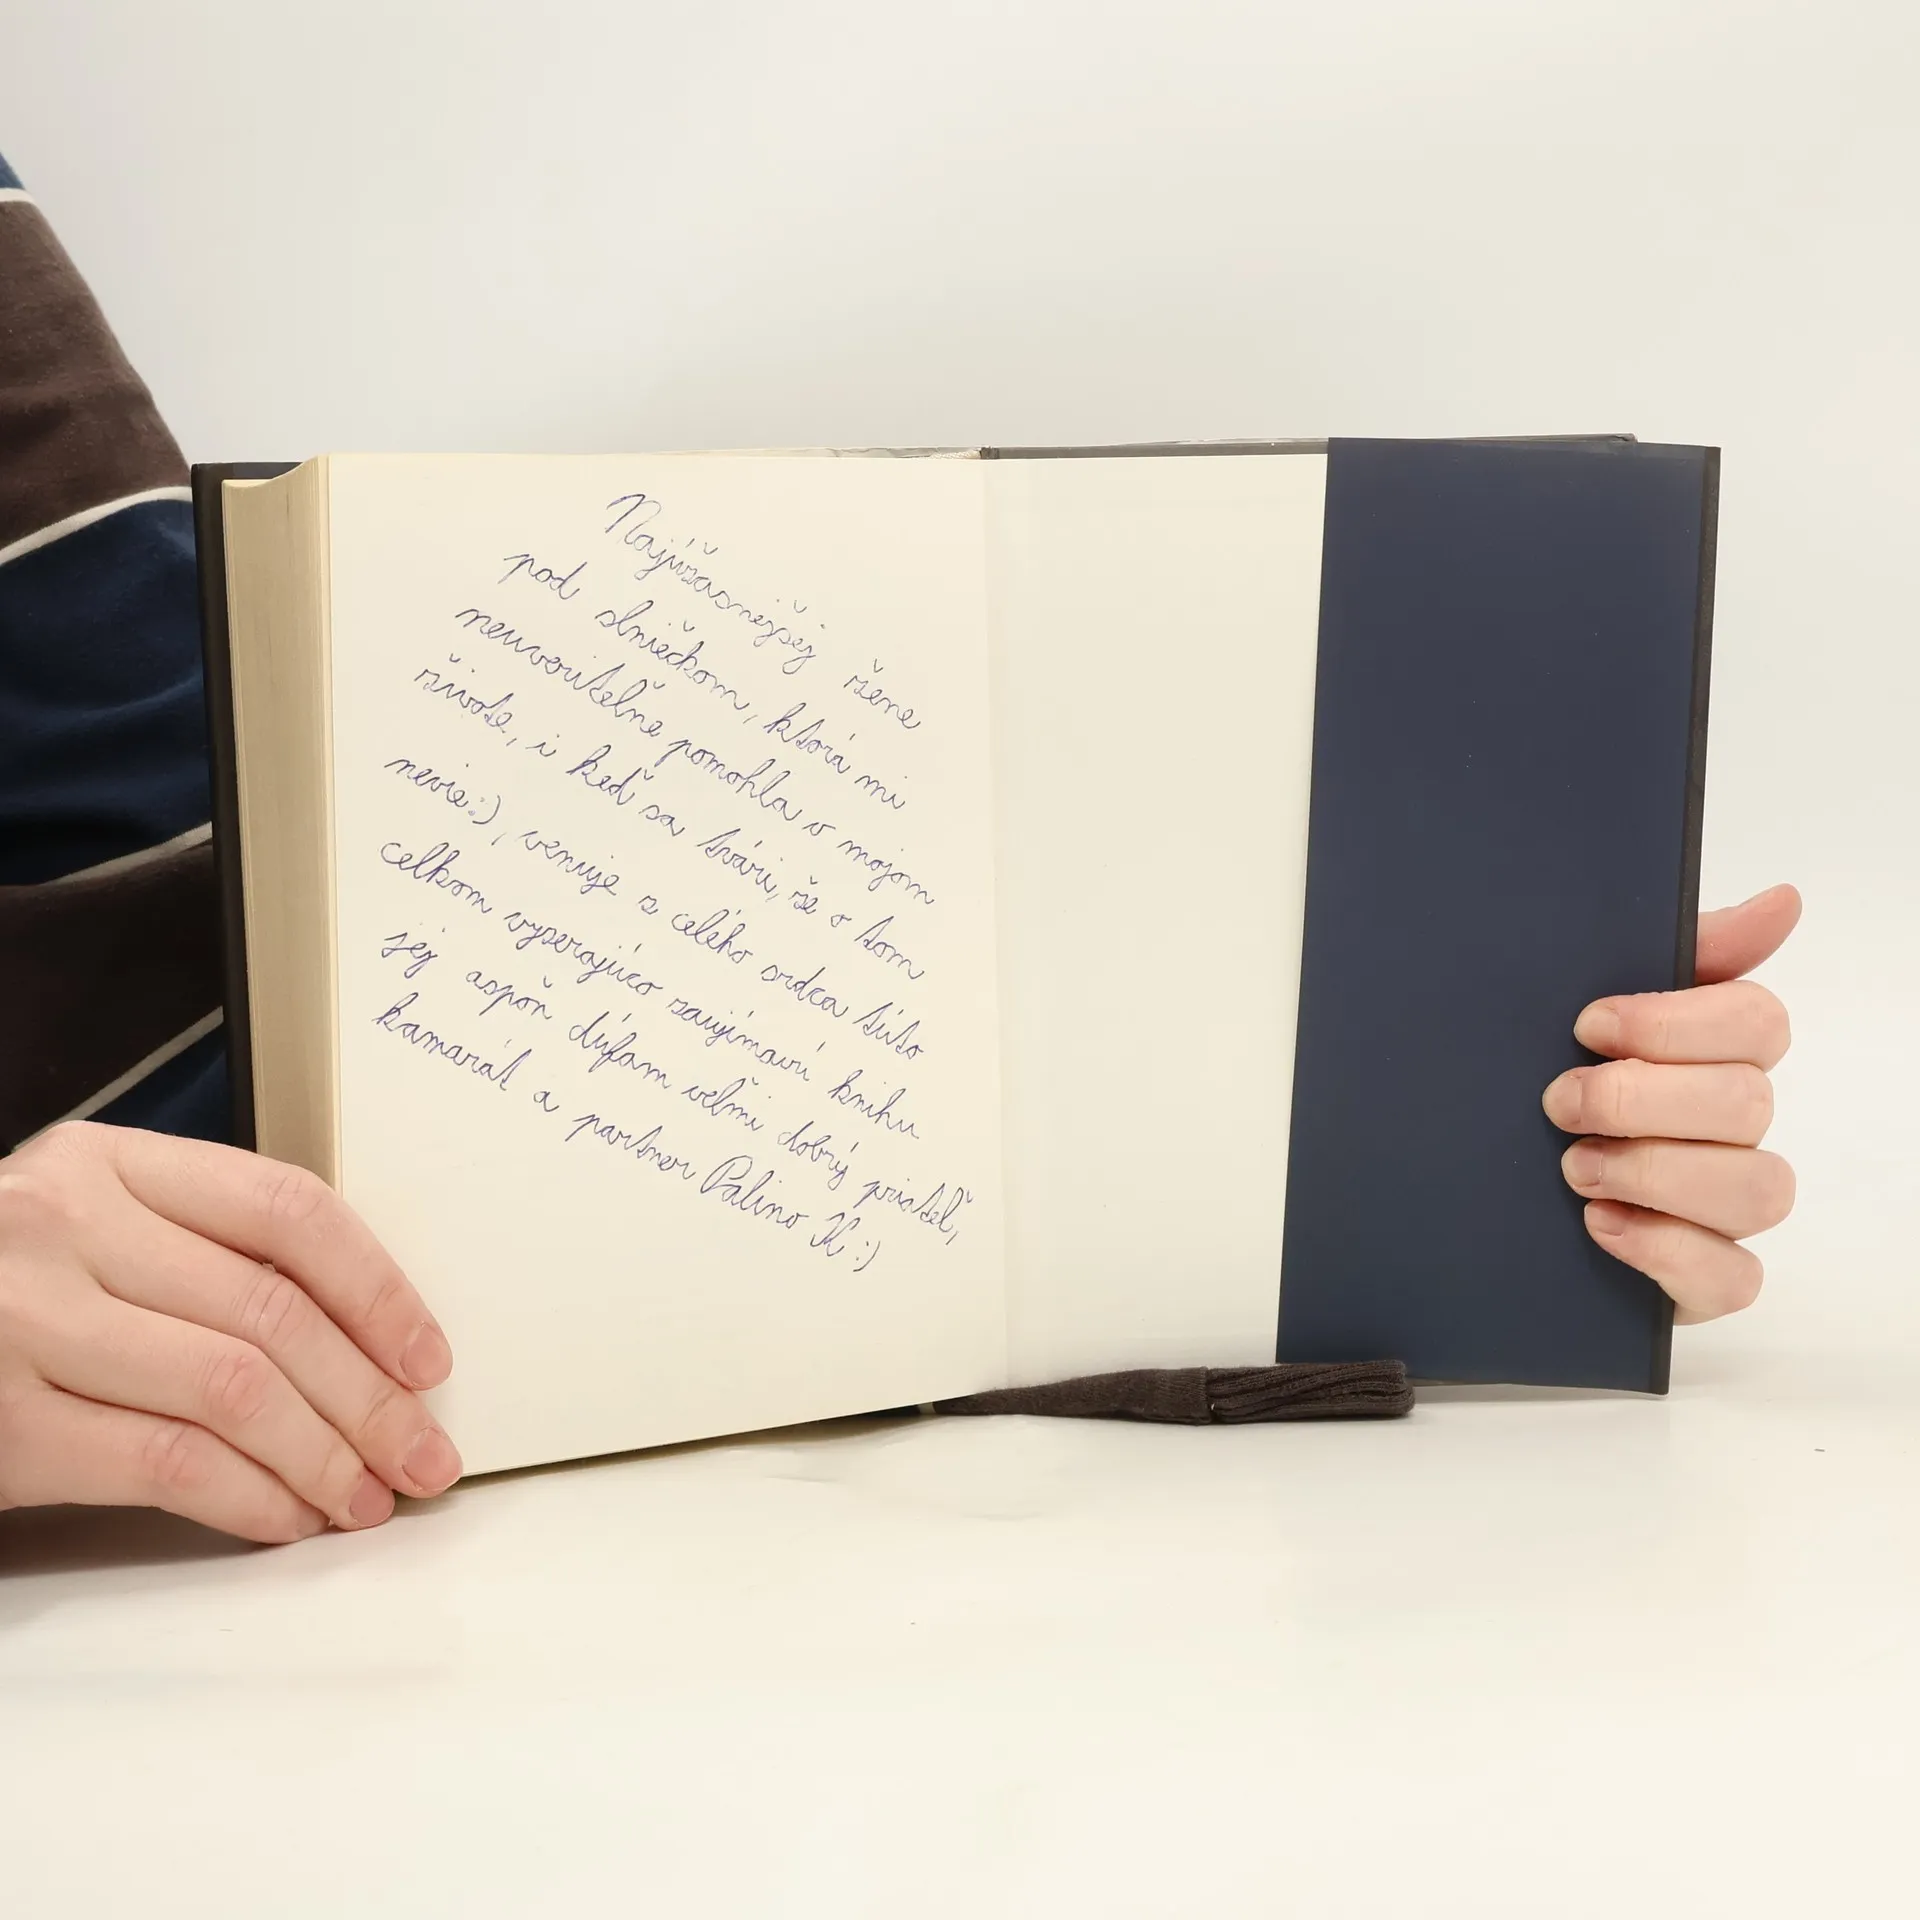 Najúžasnejšej žene
pod slniečkom, ktorá mi
neuveriteľne pomohla v mojom
živote, i keď sa tvári, že o tom
nevie:), venuje z celého srdca túto
celkom vyzerajúco zaujímavú knihu
jej aspoň dúfam veľmi dobrý priateľ,
kamarát a partner Palino K :)